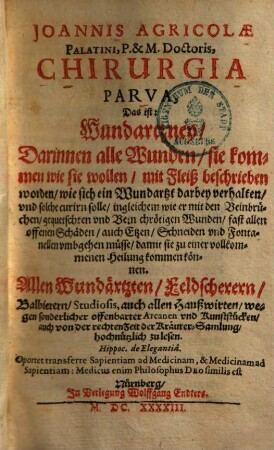 JOANNIS AGRICOLÆ
PALATINI, P. & M. Doctoris,
CHIRURGIA
PARVA,
Das ist:
Wundartzney/
Darinnen alle Wunden/ sie kom-
men wie sie wollen/ mit Fleiß beschrieben
worden/ wie sich ein Wundartzt darbey verhalten/
und solche curirn solle/ ingleichem wie er mit den Beinbrü-
chen/ gequetschten und Bein chrötigen Wunden/ fast allen
offenen Schäden/ auch Etzen/ Schneiden und Fonta-
nellen umbgehen müsse/ damit sie zu einer vollkom-
menen Heilung kommen kön-
nen.
Allen Wundärtzten/ Feldscherern/
Balbierern/ Studiosis, auch allen Haußwirten/ we-
gen sonderlicher offenbarter Arcanen und Kunststücken/
auch von der rechten Zeit der Kräuter-Samlung/
hochnützlich zu lesen.
Hippoc. de Elegantiâ.
Oportet transferre Sapientiam ad Medicinam, & Medicinam ad
Sapientiam: Medicus enim Philosophus DEO similis est
Nürnberg/
In Verlegung Wolffgang Endters.
M. DC. XXXXIII.